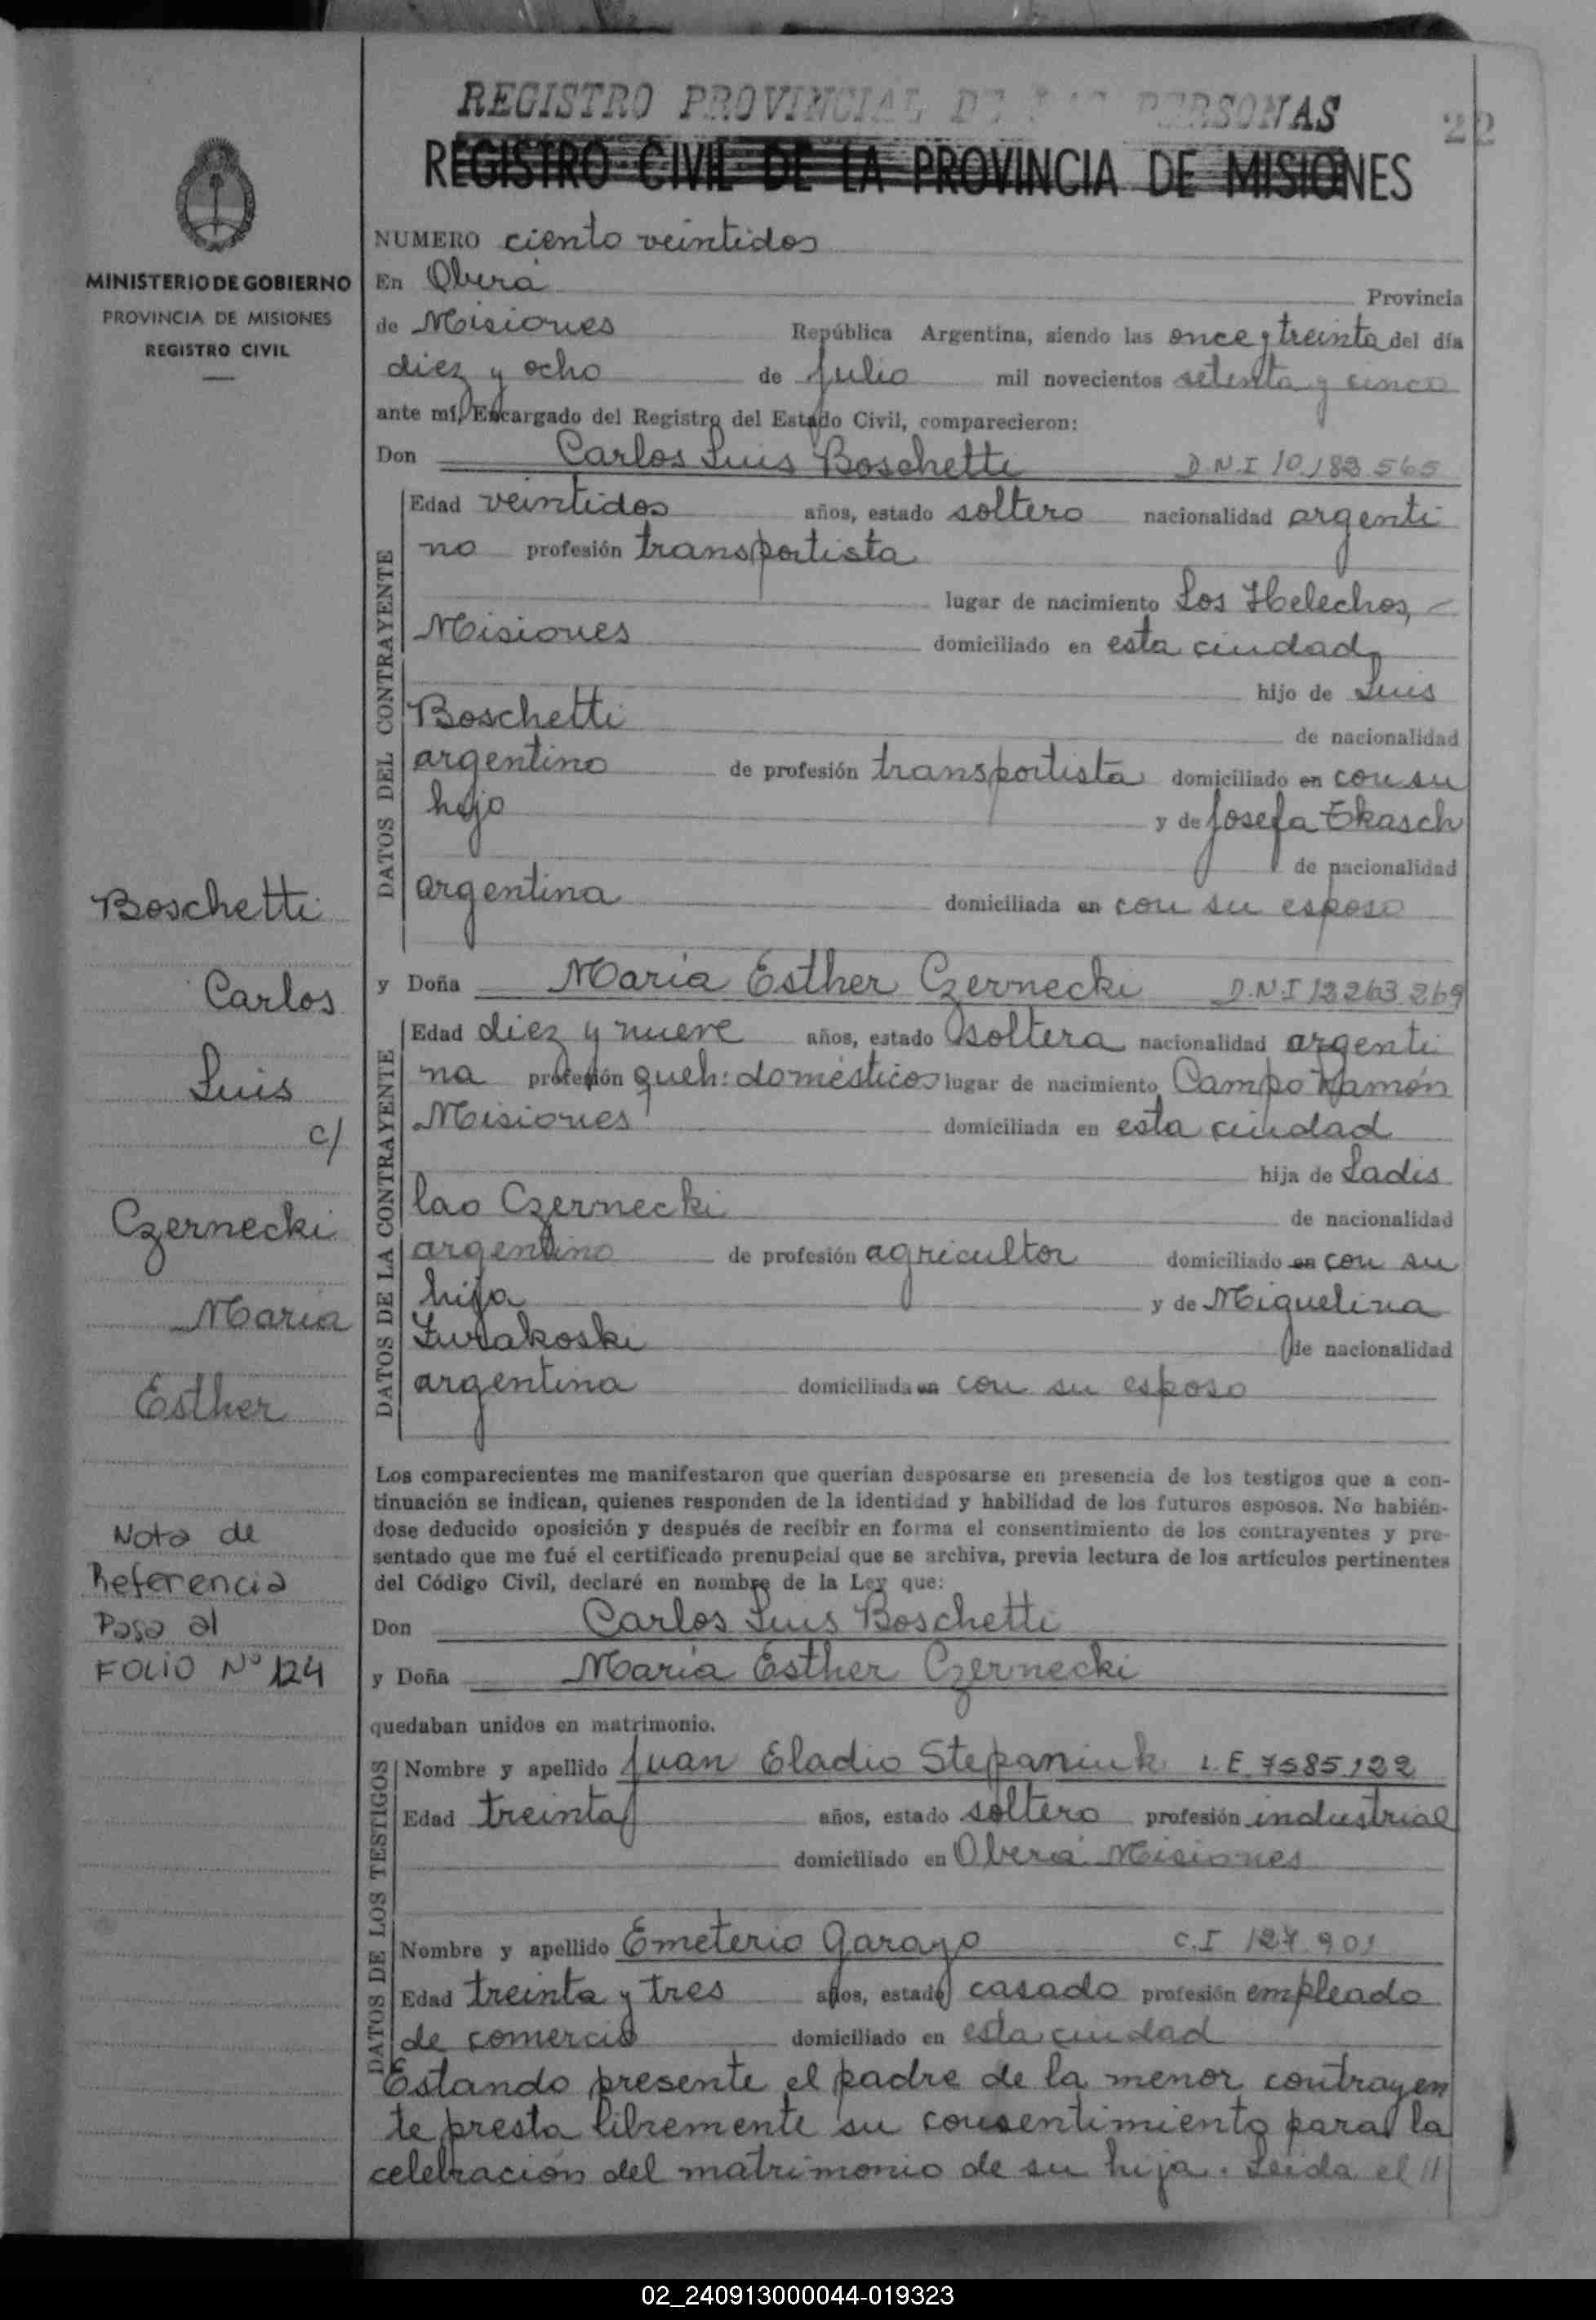 REGISTRO PROVINCIAL DE LAS PERSONAS
22
REGISTRO CIVIL DE LA PROVINCIA DE MISIONES
MINISTERIO DE GOBIERNO
PROVINCIA DE MISIONES
REGISTRO CIVIL
NUMERO ciento veintidos
En Oberá Provincia
de Misiones República Argentina, siendo las once y treinta del día
diez y ocho de julio mil novecientos setenta y cinco
ante mí, Encargado del Registro del Estado Civil, comparecieron:
Don Carlos Luis Boschetti D.N.I 10.183.565
DATOS DEL CONTRAYENTE
Edad veintidos años, estado soltero nacionalidad argenti
no profesión transportista
lugar de nacimiento Los Helechos,
Misiones domiciliado en esta ciudad
hijo de Luis
Boschetti de nacionalidad
argentino de profesión transportista domiciliado en con su
hijo y de Josefa Ekasch
de nacionalidad
argentina domiciliada en con su esposo
y Doña María Esther Czernecki D.N.I 12263269
DATOS DE LA CONTRAYENTE
Edad diez y nueve años, estado soltera nacionalidad argenti
na profesión queh: domésticos lugar de nacimiento Campo Ramón
Misiones domiciliada en esta ciudad
hija de Ladis
lao Czernecki de nacionalidad
argentino de profesión agricultor domiciliado en con su
hija y de Miguelina
Zurakoski de nacionalidad
argentina domiciliada en con su esposo
Boschetti
Carlos
Luis
c/
Czernecki
Maria
Esther
Nota de
Referencia
Pasa al
FOLIO Nº 124
Los comparecientes me manifestaron que querían desposarse en presencia de los testigos que a con-
tinuación se indican, quienes responden de la identidad y habilidad de los futuros esposos. No habién-
dose deducido oposición y después de recibir en forma el consentimiento de los contrayentes y pre-
sentado que me fué el certificado prenupcial que se archiva, previa lectura de los artículos pertinentes
del Código Civil, declaré en nombre de la Ley que:
Don Carlos Luis Boschetti
y Doña María Esther Czernecki
quedaban unidos en matrimonio.
DATOS DE LOS TESTIGOS
Nombre y apellido Juan Eladio Stepaniuk L.E. 7585.122
Edad treinta años, estado soltero profesión industrial
domiciliado en Oberá Misiones
Nombre y apellido Emeterio Garayo C.I 127.901
Edad treinta y tres años, estado casado profesión empleado
de comercio domiciliado en esta ciudad
Estando presente el padre de la menor contrayen
te presta libremente su consentimiento para la
celebración del matrimonio de su hija. Leida el //
02_240913000044-019323